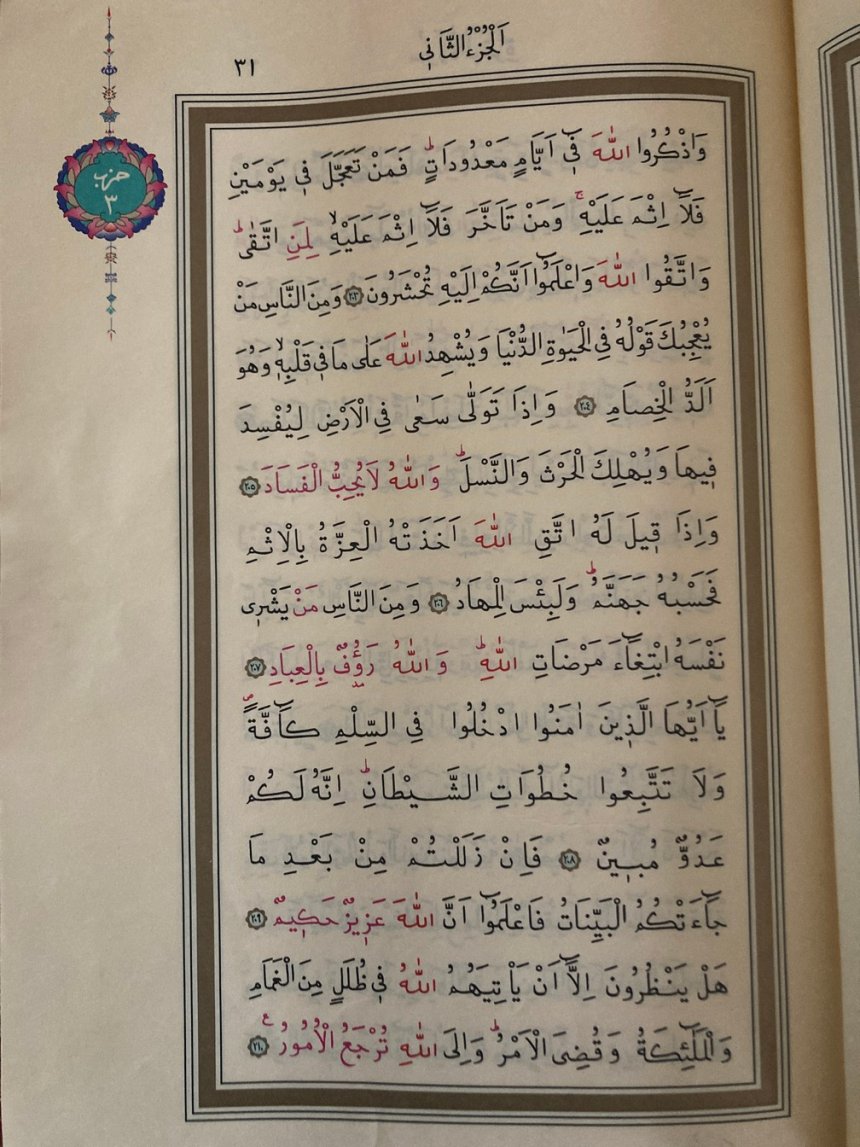 اَلْجُزْءُ الثَّانٖي
٣١
حزب
٣
وَاذْكُرُوا اللّٰهَ فٖٓي اَيَّامٍ مَعْدُودَاتٍؕ فَمَنْ تَعَجَّلَ فٖي يَوْمَيْنِ
فَلَٓا اِثْمَ عَلَيْهِۚ وَمَنْ تَاَخَّرَ فَلَٓا اِثْمَ عَلَيْهِۙ لِمَنِ اتَّقٰىؕ
وَاتَّقُوا اللّٰهَ وَاعْلَمُٓوا اَنَّكُمْ اِلَيْهِ تُحْشَرُونَ ﴿٢٠٣﴾ وَمِنَ النَّاسِ مَنْ
يُعْجِبُكَ قَوْلُهُ فِي الْحَيٰوةِ الدُّنْيَا وَيُشْهِدُ اللّٰهَ عَلٰى مَا فٖي قَلْبِهٖۙ وَهُوَ
اَلَدُّ الْخِصَامِ ﴿٢٠٤﴾ وَاِذَا تَوَلّٰى سَعٰى فِي الْاَرْضِ لِيُفْسِدَ
فٖيهَا وَيُهْلِكَ الْحَرْثَ وَالنَّسْلَؕ وَاللّٰهُ لَا يُحِبُّ الْفَسَادَ ﴿٢٠٥﴾
وَاِذَا قٖيلَ لَهُ اتَّقِ اللّٰهَ اَخَذَتْهُ الْعِزَّةُ بِالْاِثْمِ
فَحَسْبُهُ جَهَنَّمُؕ وَلَبِئْسَ الْمِهَادُ ﴿٢٠٦﴾ وَمِنَ النَّاسِ مَنْ يَشْرٖي
نَفْسَهُ ابْتِغَٓاءَ مَرْضَاتِ اللّٰهِؕ وَاللّٰهُ رَؤُ۫فٌ بِالْعِبَادِ ﴿٢٠٧﴾
يَٓا اَيُّهَا الَّذٖينَ اٰمَنُوا ادْخُلُوا فِي السِّلْمِ كَٓافَّةًࣕ
وَلَا تَتَّبِعُوا خُطُوَاتِ الشَّيْطَانِؕ اِنَّهُ لَكُمْ
عَدُوٌّ مُبٖينٌ ﴿٢٠٨﴾ فَاِنْ زَلَلْتُمْ مِنْ بَعْدِ مَا
جَٓاءَتْكُمُ الْبَيِّنَاتُ فَاعْلَمُٓوا اَنَّ اللّٰهَ عَزٖيزٌ حَكٖيمٌ ﴿٢٠٩﴾
هَلْ يَنْظُرُونَ اِلَّٓا اَنْ يَأْتِيَهُمُ اللّٰهُ فٖي ظُلَلٍ مِنَ الْغَمَامِ
وَالْمَلٰٓئِكَةُ وَقُضِيَ الْاَمْرُؕ وَاِلَى اللّٰهِ تُرْجَعُ الْاُمُورُࣖ ﴿٢١٠﴾